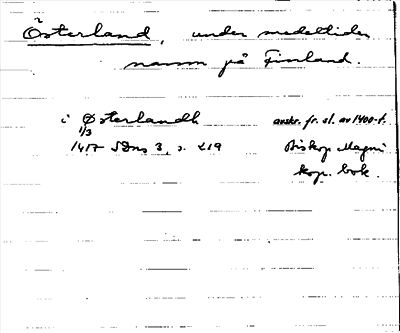 Österland, under medeltiden
namn på Finland.
i Østerlandh avskr. fr. sl. av 1400-t.
1/3
1417 SDns 3, s. 219 Biskop Magni
kop. bok.